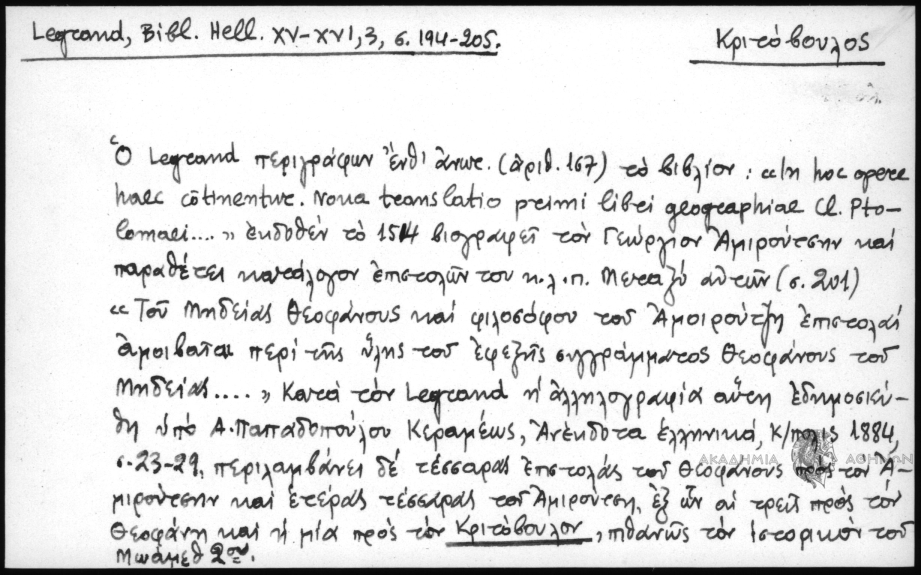 Legrand, Bibl. Hell. XV-XVI, 3, σ. 194-205.
Κριτόβουλος
Ὁ Legrand περιγράφων ἔνθ' ἀνωτ. (ἀριθ. 167) τὸ βιβλίον: «In hoc opere
haec cõtinentur. Noua translatio primi libri geographiae Cl. Pto-
lomaei....» ἐκδοθέν τὸ 1514 βιογραφεῖ τὸν Γεώργιον Ἀμιρούτσην καὶ
παραθέτει κατάλογον ἐπιστολῶν του κ.λ.π. Μεταξύ αὐτῶν (σ. 201)
«Τοῦ Μηδείας Θεοφάνους καὶ φιλοσόφου τοῦ Ἀμοιρούτζη ἐπιστολαί
ἀμοιβαῖαι περὶ τῆς ὕλης τοῦ ἐφεξῆς συγγράμματος Θεοφάνους τοῦ
Μηδείας....» Κατὰ τὸν Legrand ἡ ἀλληλογραφία αὕτη ἐδημοσιεύ-
θη ὑπὸ Α. Παπαδοπούλου Κεραμέως, Ἀνέκδοτα ἑλληνικά, Κ/πολις 1884,
σ. 23-29, περιλαμβάνει δέ τέσσαρας ἐπιστολάς τοῦ Θεοφάνους πρὸς τὸν Ἀ-
μιρούτσην καὶ ἑτέρας τέσσαρας τοῦ Ἀμιρούτση, ἐξ ὧν αἱ τρεῖς πρὸς τὸν
Θεοφάνη καὶ ἡ μία πρὸς τὸν Κριτόβουλον, πιθανῶς τὸν ἱστορικὸν τοῦ
Μωάμεθ 2ου.
ΑΚΑΔΗΜΙΑ ΑΘΗΝΩΝ